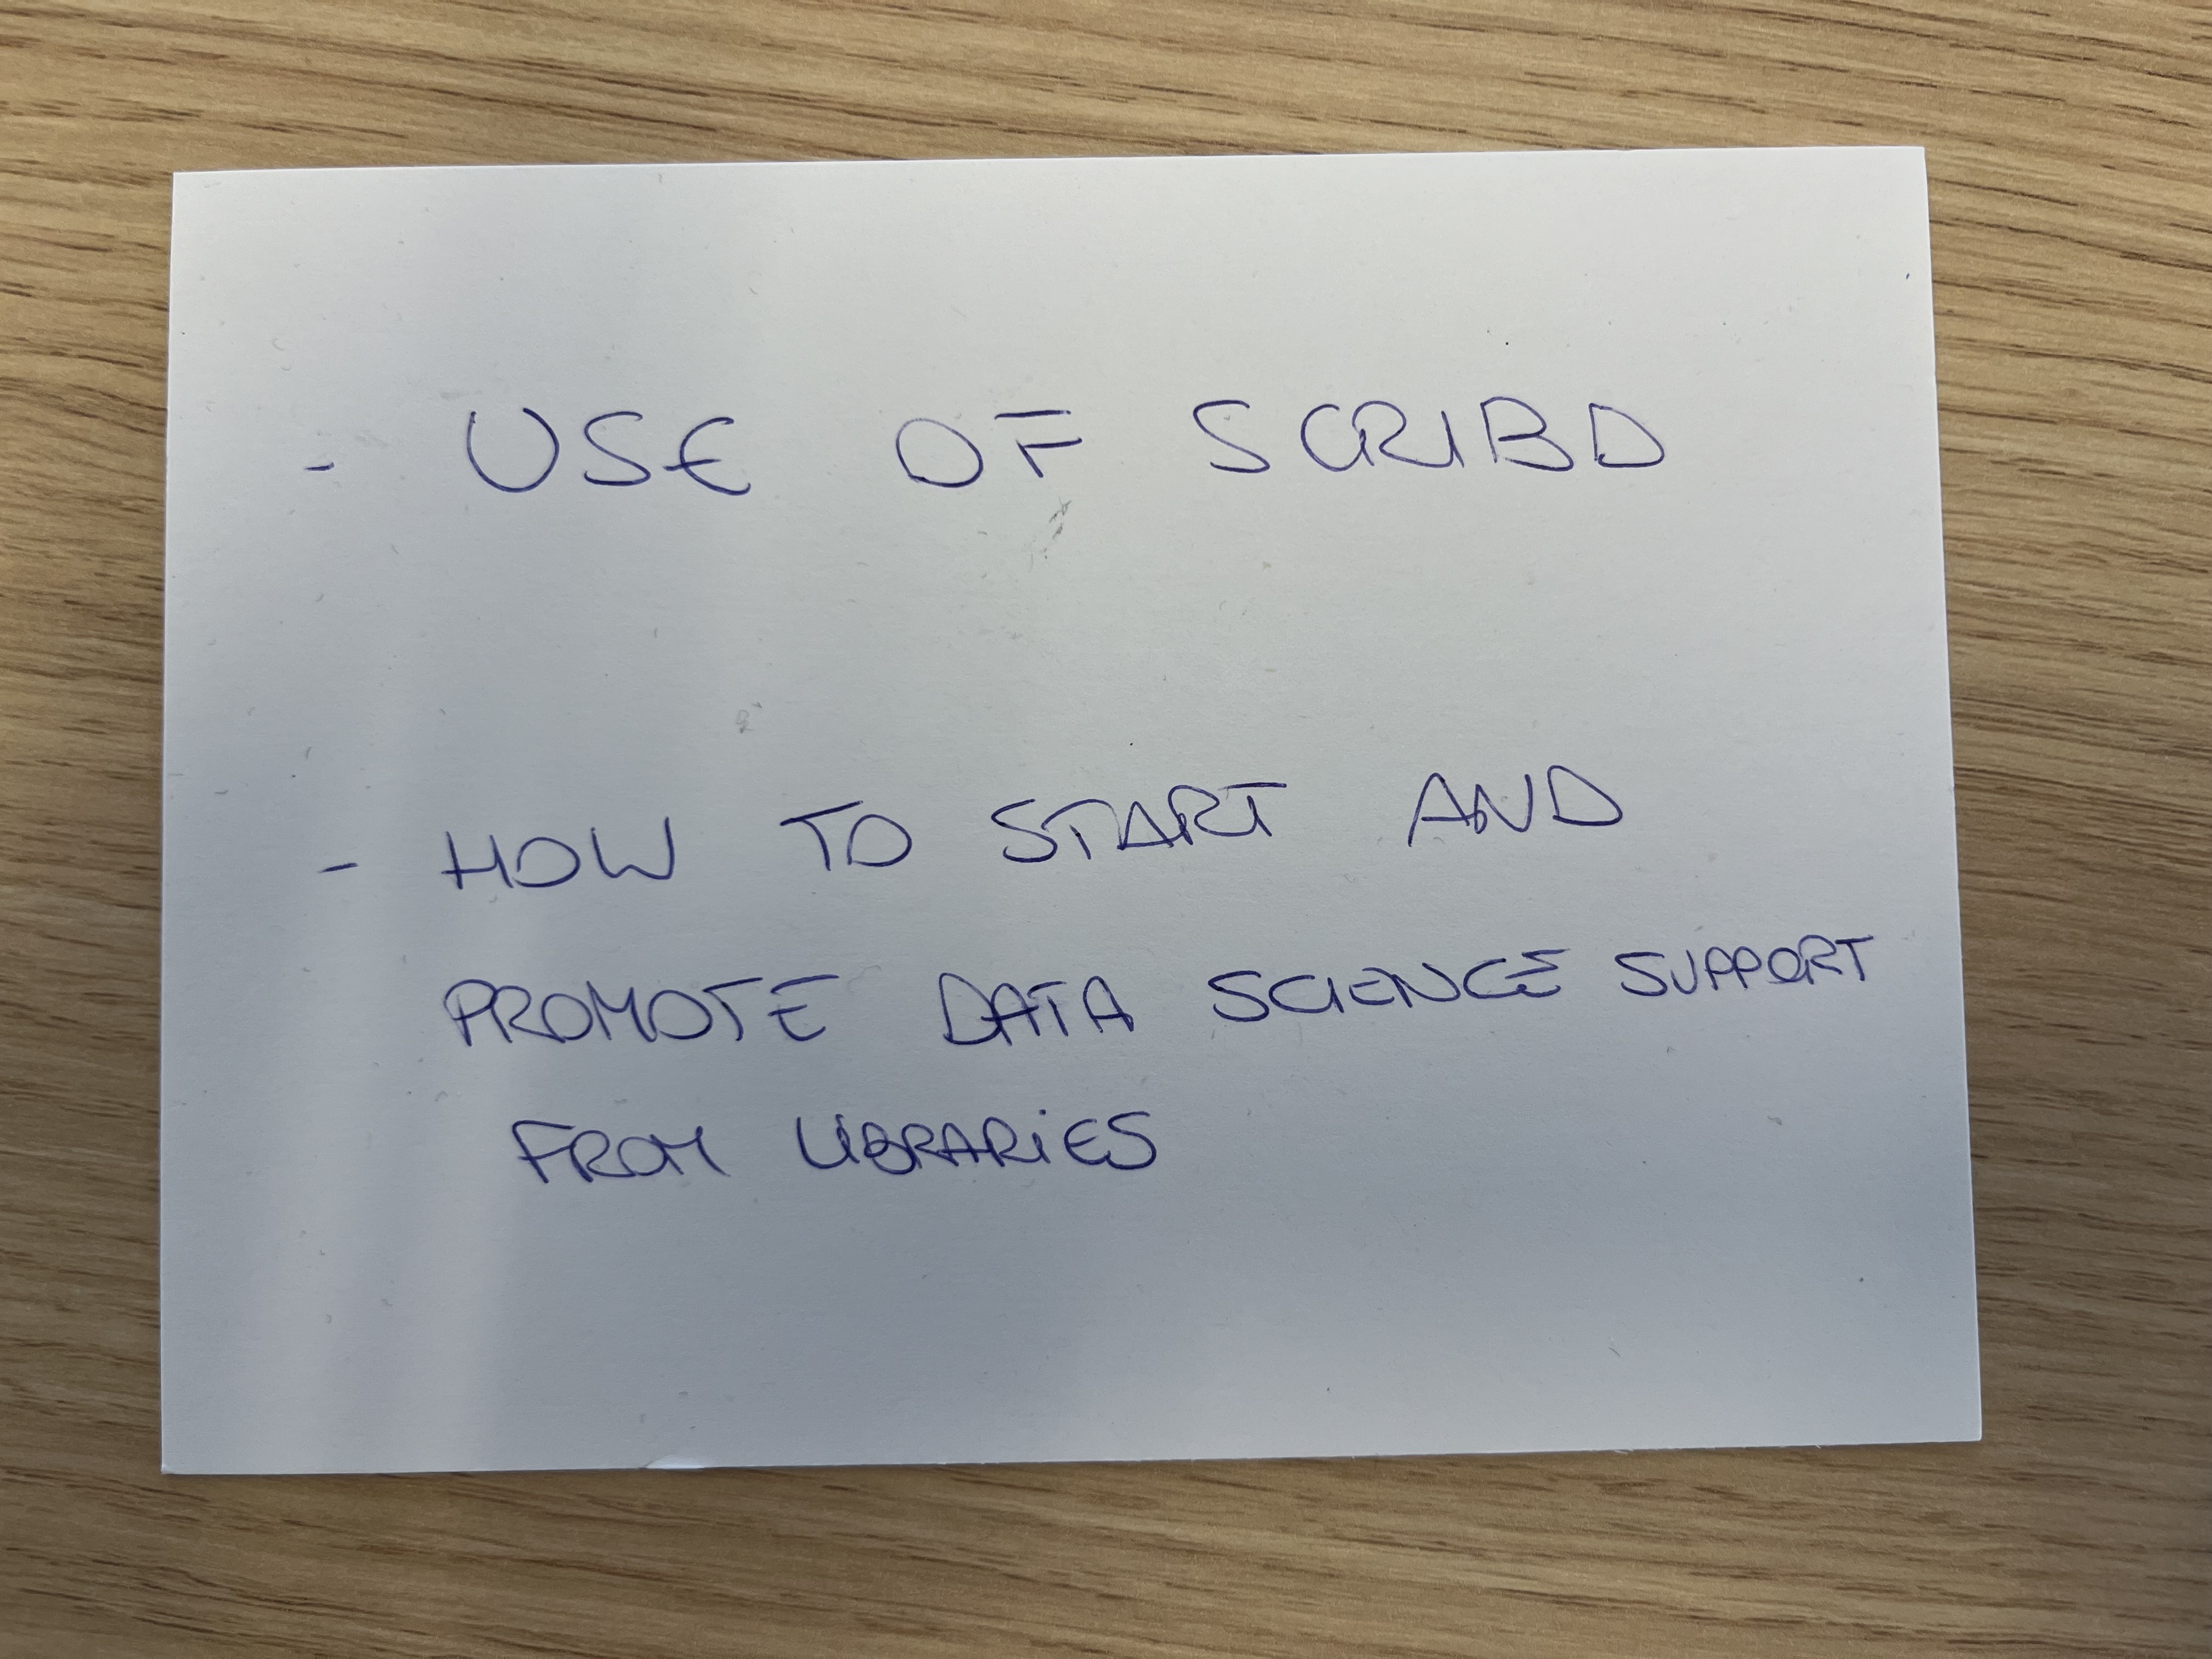 - USE OF SCRIBD
- HOW TO START AND
PROMOTE DATA SCIENCE SUPPORT
FROM LIBRARIES